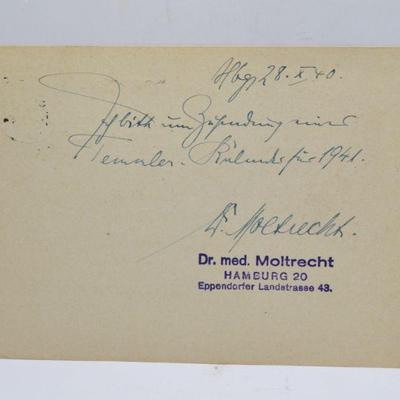 Hbg, 28. X. 40.
Ich bitte um Zusendung eines
Temmler-Kalenders für 1941.
Dr. Moltrecht.
Dr. med. Moltrecht
HAMBURG 20
Eppendorfer Landstrasse 43.